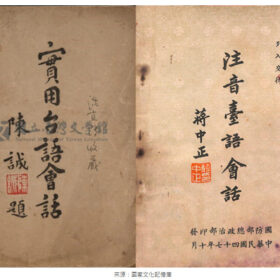 實用台語會話
陳誠題
注音臺語會話
蔣中正
國防部總政治部印發
中華民國四十七年十月
來源：國家文化記憶庫